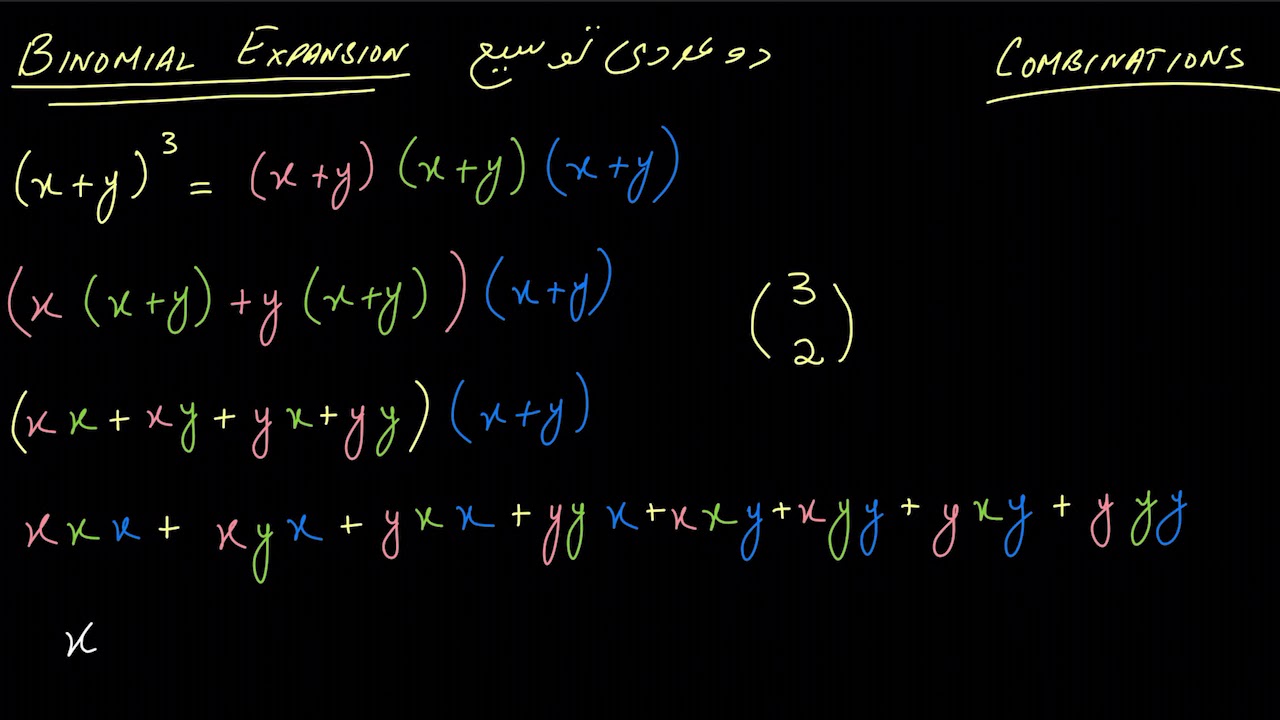 BINOMIAL EXPANSION دو عددی توسیع COMBINATIONS
(x+y)³ = (x+y) (x+y) (x+y)
(x (x+y) + y (x+y)) (x+y)
(3 2)
(xx + xy + yx + yy) (x+y)
xxx + xyx + yxx + yyx + xxy + xyy + yxy + yyy
x